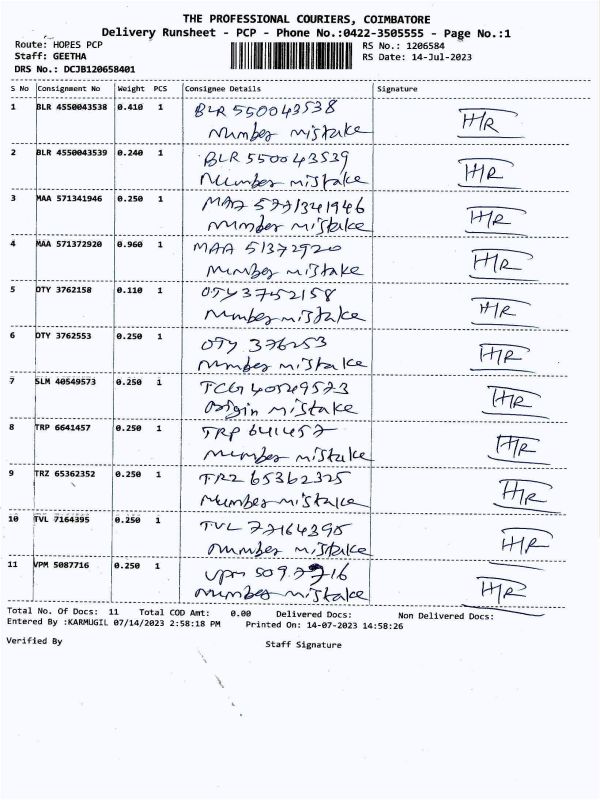 THE PROFESSIONAL COURIERS, COIMBATORE
Delivery Runsheet - PCP - Phone No.:0422-3505555 - Page No.:1
Route: HOPES PCP RS No.: 1206584
Staff: GEETHA RS Date: 14-Jul-2023
DRS No.: DCJB120658401
S No Consignment No Weight PCS Consignee Details Signature
1 BLR 4550043538 0.410 1 BLR 550043538 HR
Number mistake
2 BLR 4550043539 0.240 1 BLR 550043539 HR
Number mistake
3 MAA 571341946 0.250 1 MAA 5771341946 HR
Number mistake
4 MAA 571372920 0.960 1 MAA 51372920 HR
Number mistake
5 OTY 3762158 0.110 1 OTY 3752158 HR
Number mistake
6 OTY 3762553 0.250 1 OTY 376253 HR
Number mistake
7 SLM 40549573 0.250 1 TCG 40549573 HR
Origin mistake
8 TRP 6641457 0.250 1 TRP 641457 HR
Number mistake
9 TRZ 65362352 0.250 1 TRZ 65362325 HR
Number mistake
10 TVL 7164395 0.250 1 TVL 77164395 HR
Number mistake
11 VPM 5087716 0.250 1 VPM HR
Number mistake
Total No. Of Docs: 11 Total COD Amt: 0.00 Delivered Docs: Non Delivered Docs:
Entered By :KARMUGIL 07/14/2023 2:58:18 PM Printed On: 14-07-2023 14:58:26
Verified By Staff Signature